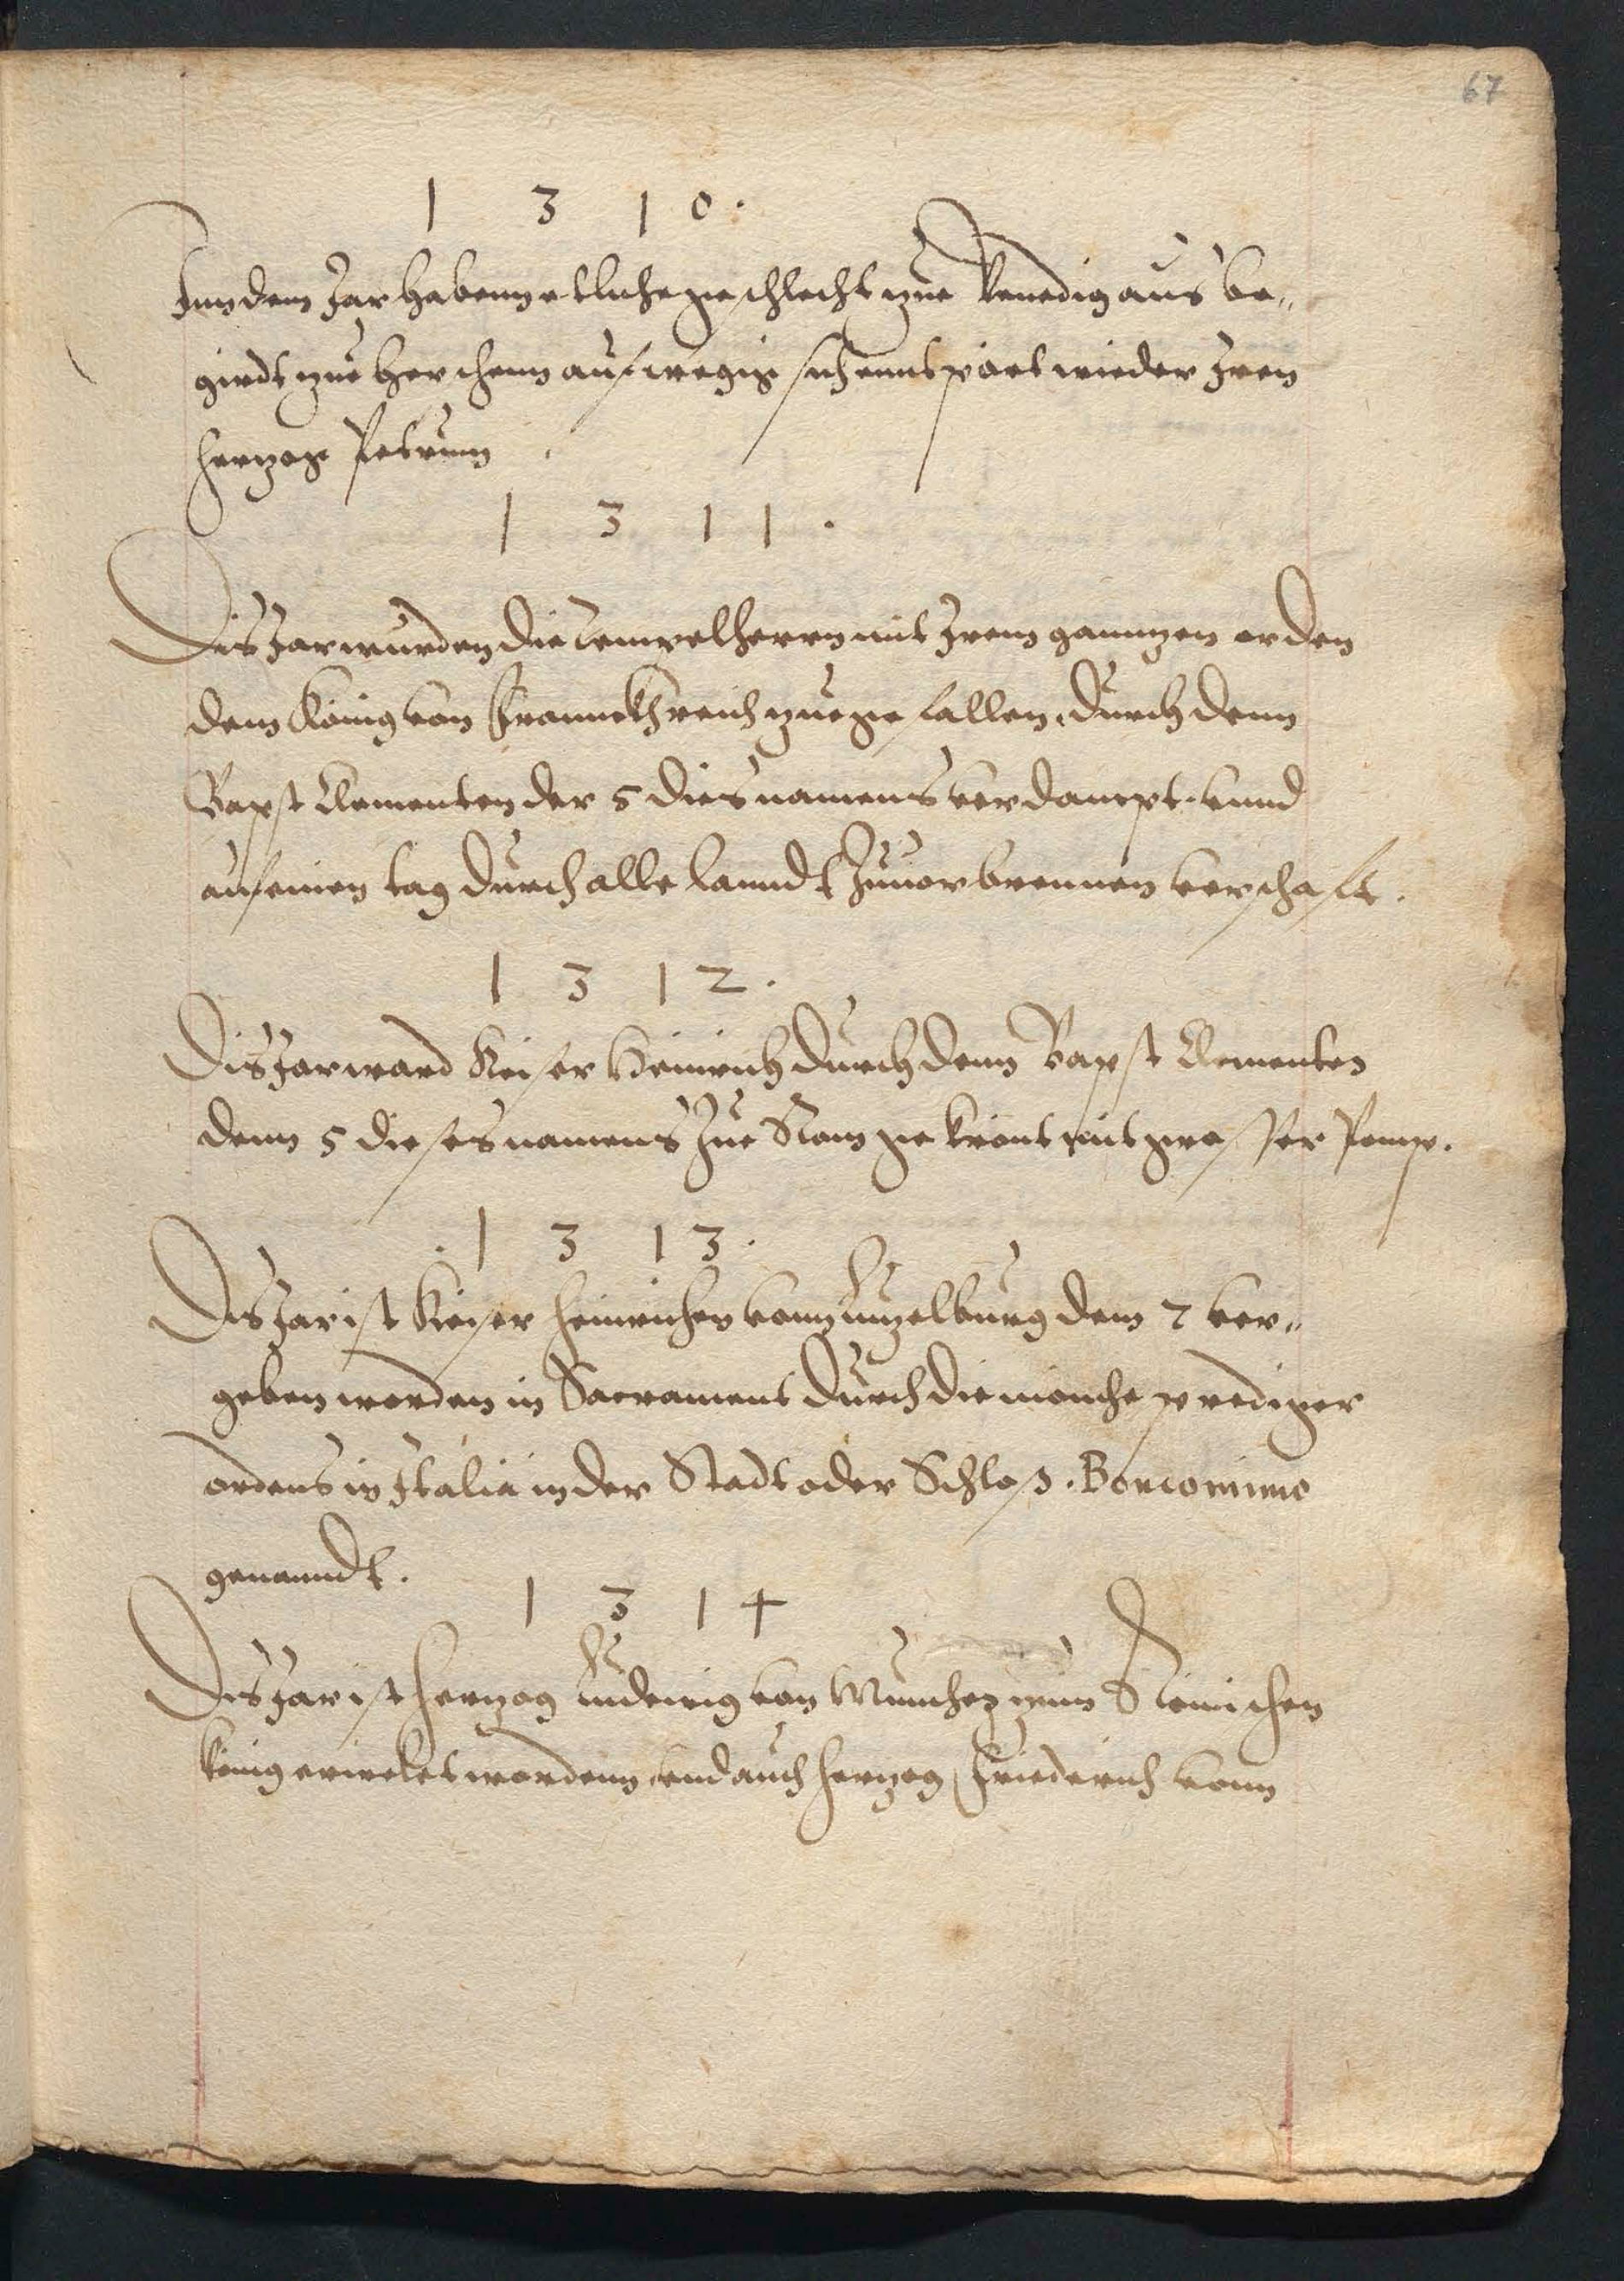 67
1 3 1 0.
Inn dem Jar habenn etliche geschlecht zue Venedig aus be„
girdt zue herschenn aufrregig sich enntpört wieder Iren
hertzog Petrum.
1 3 1 1.
Dis Jar wurden die tempelherrn mit Irem ganntzen orden
dem König von Frannckhreich zue gefallen, durch denn
Bapst Clementen der 5 dies namens verdampt. vnnd
auf einen tag durch alle lanndt Zuuerbrennen verschafft.
1 3 1 2.
Dis Jar ward Keiser Heinrich durch denn Bapst Clementen
denn 5 dieses namens Zue Rom gekrönt mit grosser Pomp.
. 1 3 1 3.
Dis Jar ist Keiser Heinrichen vonn Lutzelburg dem 7 ver„
geben worden in Sacrament durch die mönche prediger
ordens in Italia in der Stadt oder Schlosz. Bonconimo
genanndt.
1 3 1 4
Dis Jar ist hertzog Ludewig von München zum Römischen
könig erwelet wordenn, vnd auch hertzog Friederich vonn